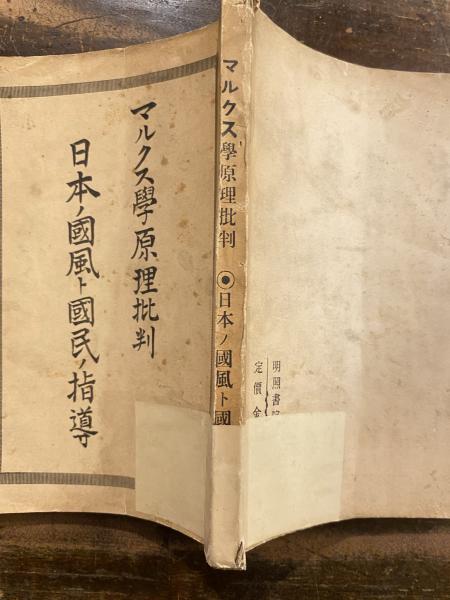 マルクス學原理批判
日本ノ國風ト國民ノ指導
マルクス學原理批判 ◉日本ノ國風ト國
明照書院
定價金